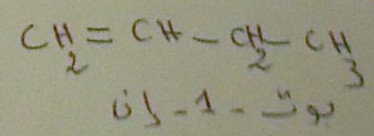 CH₂ = CH - CH₂ - CH₃
بوت - 1 - ان